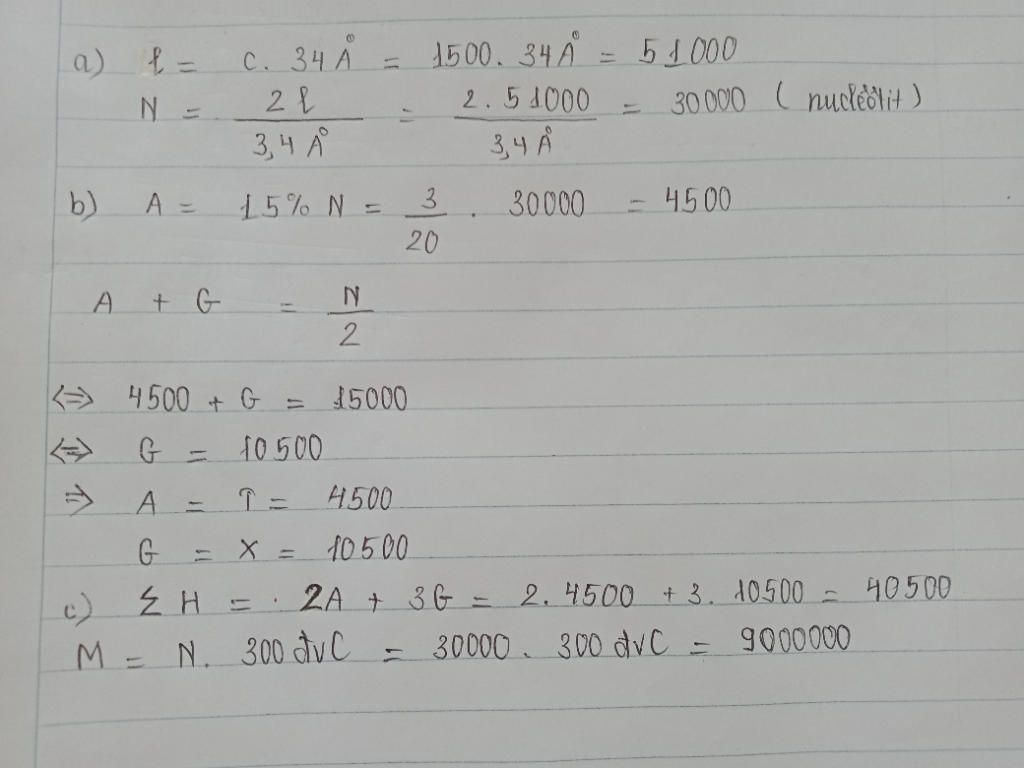 a) ℓ = C. 34 Å = 1500. 34 Å = 51000
N = 2ℓ / 3,4 Å = 2. 51000 / 3,4 Å = 30000 ( nuclêôtit )
b) A = 15% N = 3/20 . 30000 = 4500
A + G = N/2
<=> 4500 + G = 15000
<=> G = 10500
=> A = T = 4500
G = X = 10500
c) Σ H = . 2A + 3G = 2. 4500 + 3. 10500 = 40500
M = N. 300 đvC = 30000. 300 đvC = 9000000